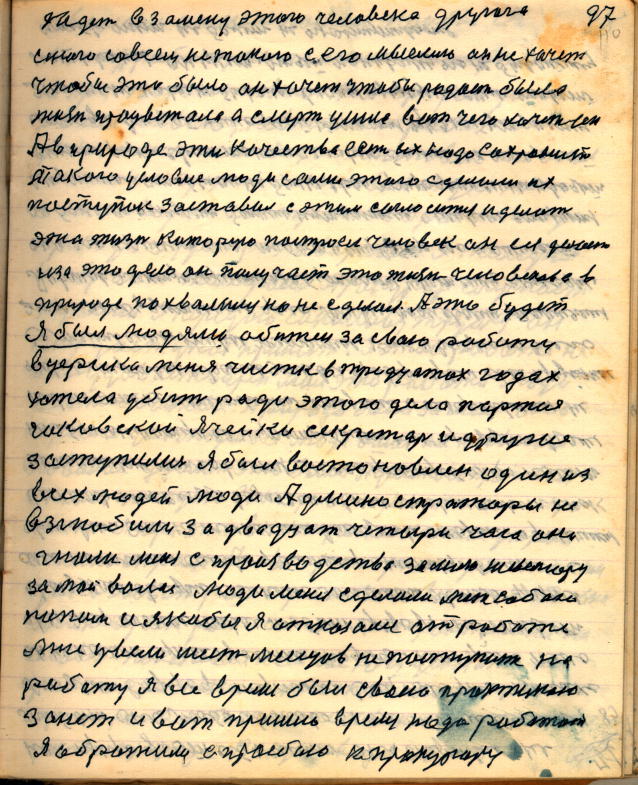 взамену этого человека другога 97
110
совсем не такого с его мыслию он не хочет
чтобы это было он хочет чтобы радост была
жизн процветала а смерт ушла вот чего хочет
А в природе эти качества ест их надо сохранит
такого условие люди сами этого сделали их
поступок заставил с этим согласится и делат
эта жизн которую построил человек он ея делает
и за это дело он получает это жизн человека в
природе похвалил но не сделал. А это будет
Я был людями обижен за свою работу
в уерика меня чистк в тридцатых годах
хотела убит ради этого дела партия
гоковской ячейки секретар и другие
заступилис я был востоновлен один из
всех людей люди Администраторы не
взлюбили за двадцат четыри часа они
гнали меня с производства за мою
за мои волоса люди меня сделали меня собою
попом и якобы я отказался от работы
мне цвели шест месяцов не поступит на
работу я все время был своею практикаю
занет и вот пришло время надо работат
Я обратился с прозбою к прокурору